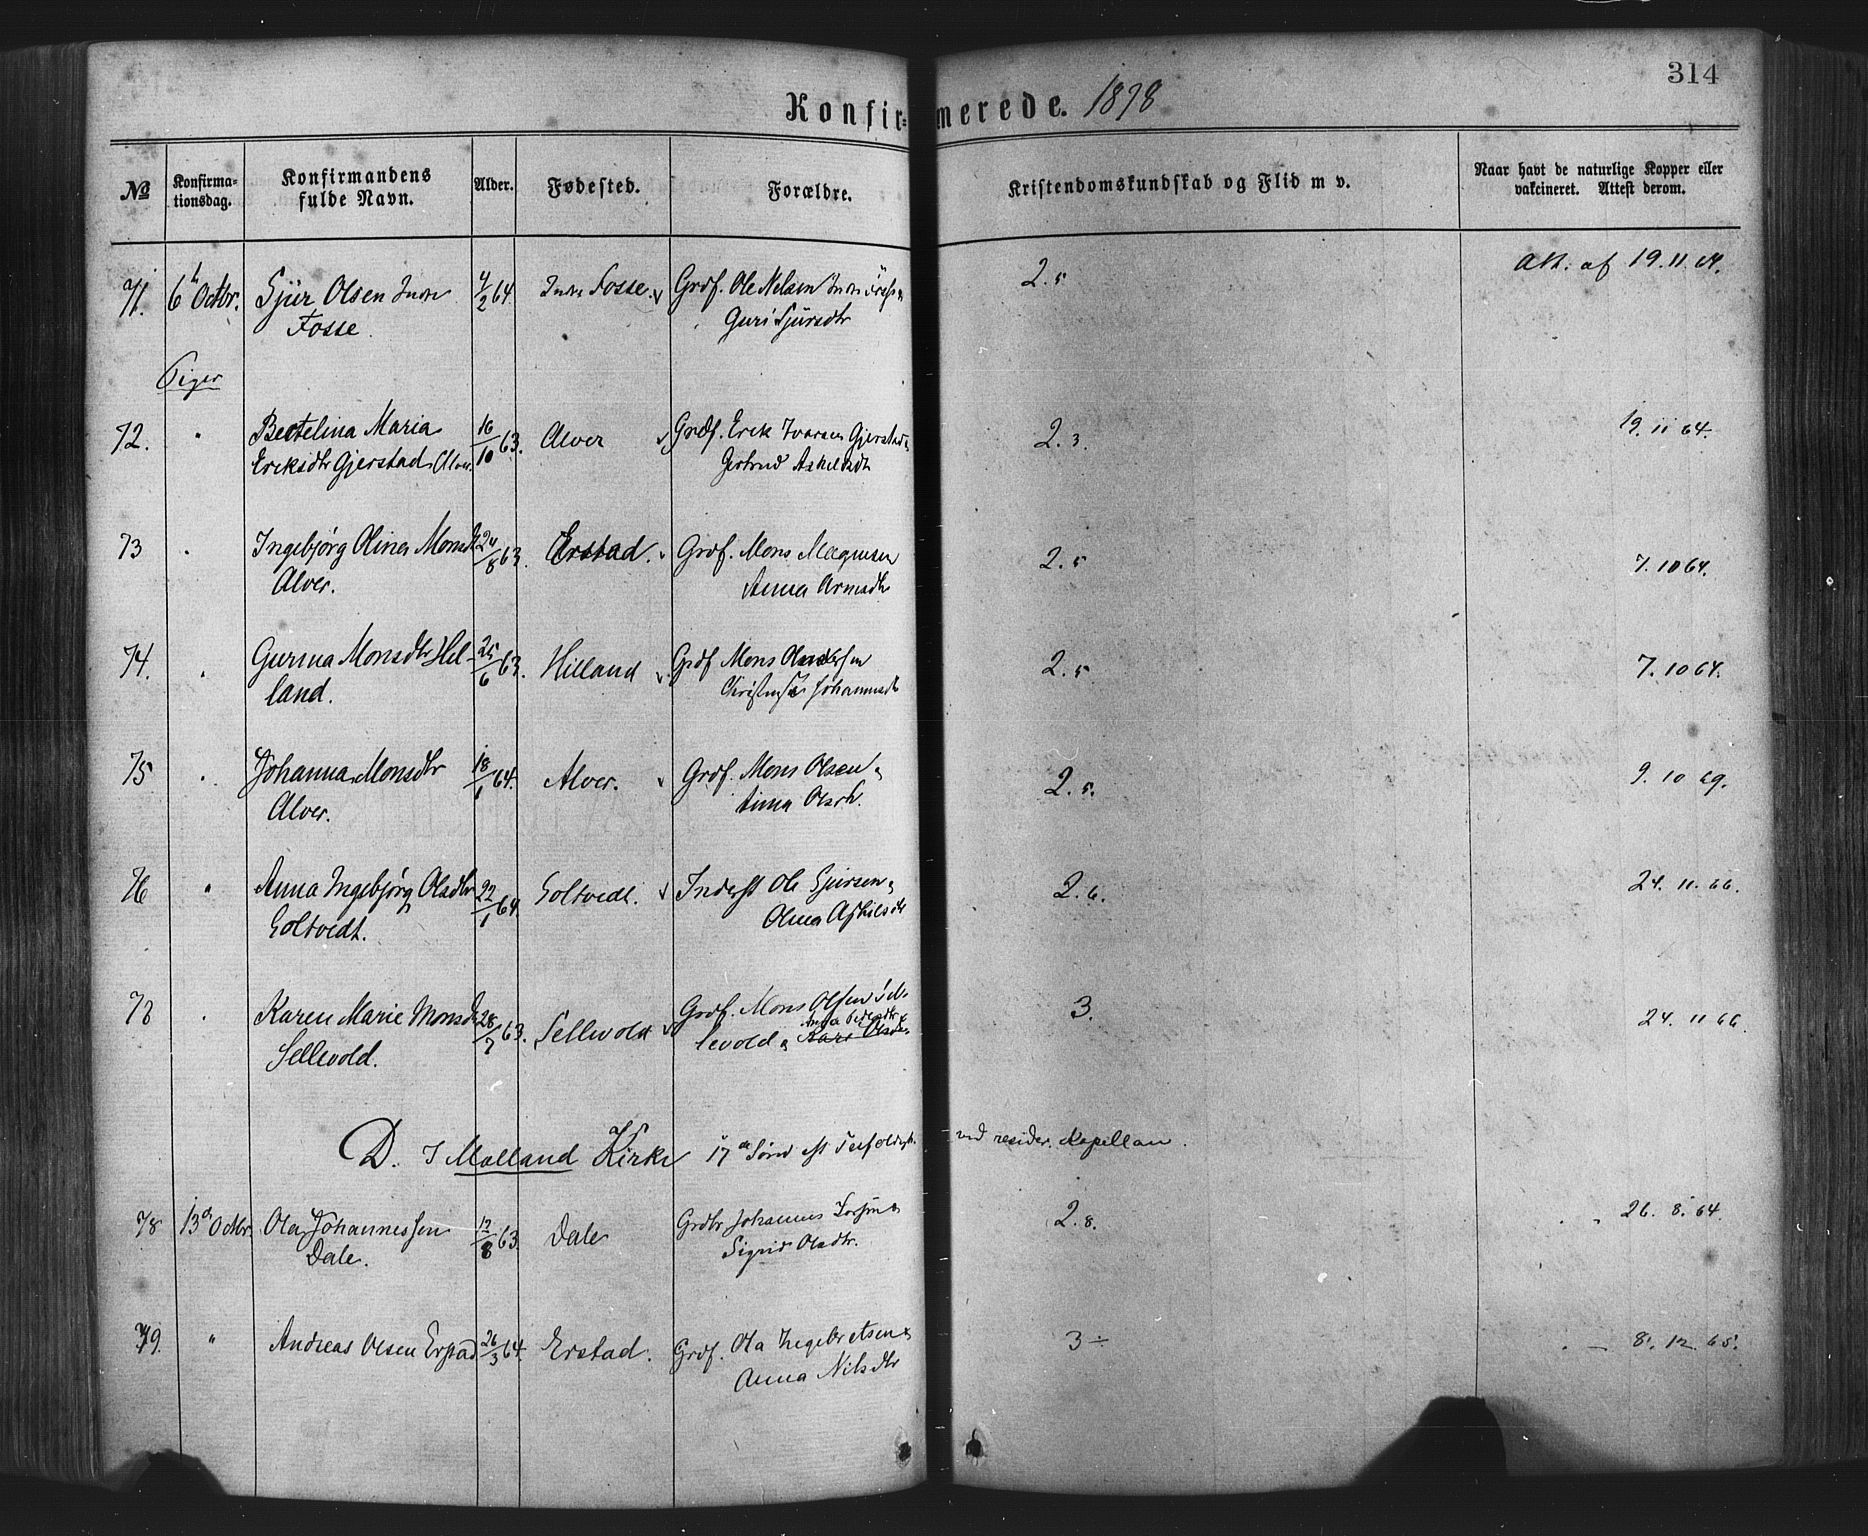 314
Konfirmerede. 1878
No
Konfirma-
tionsdag.
Konfirmandens
fulde Navn.
Alder.
Fødested.
Forældre.
Kristendomskundskab og Flid m v.
Naar havt de naturlige Kopper eller
vakcineret. Attest derom.
71. 6 Octbr. Sjur Olsen Indre 4/2 64. Indre Fosse Grdf. Ole Nelsen Indre Fosse 2.5 Att. af 19.11.64.
Fosse. Guri Sjursdtr
Piger
72. " Bertelina Maria 16/10 63. Alver Grdf. Erik Ivarsen Gjerstad 2.3. 19.11 64.
Eriksdtr Gjerstad, Alver. Gertrud Askelsdtr
73 " Ingebjørg Olina Monsdtr 24/8 63. Erstad. Grdf. Mons Magnesen 2.5 7.10 64.
Alver. Anna Arnesdtr
74. " Gurina Monsdtr Hel- 25/6 63. Hilland Grdf Mons Andersen 2.5 7.10 64.
land. Johannesdtr
75 " Johanna Monsdtr 18/1 64. Alver. Grdf. Mons Olsen 2.5. 9. 10 69.
Alver. Anna Olsdtr.
76 " Anna Ingebjørg Olsdtr 22/1 64. Soltvedt. Inderst Ole Sjursen 2.6. 24. 11. 66.
Soltvedt. Olina Askilsdtr
78 " Karen Marie Monsdtr 28/7 63. Sellevold Grdf. Mons Olsen Sel- 3. 24. 11 66.
Sellevold. levold & Anna Pedersdtr
Kari Olsdtr
D. I Mælland Kirke 17de Sønd eft Trefoldigh. ved resider. Kapellan.
78 13de Octbr. Ola Johannessen 12/8 63. Dale Grdbr Johannes 2.8. " 26. 8. 64.
Dale. Sigrid Olsdtr.
79. " Andreas Olsen Erstad 26/3 64. Erstad. Grdf. Ola Ingebretsen 3 ÷ " 8. 12 65.
Anna Nilsdtr